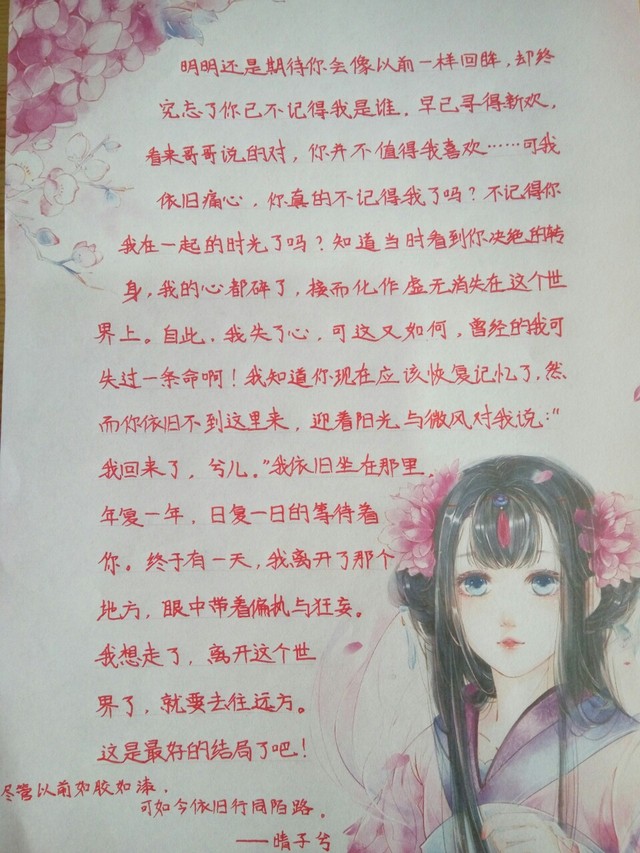 明明还是期待你会像以前一样回眸，却终
究忘了你已不记得我是谁。早已寻得新欢，
看来哥哥说的对，你并不值得我喜欢……可我
依旧痛心，你真的不记得我了吗？不记得你
我在一起的时光了吗？知道当时看到你决绝的转
身，我的心都碎了，换而化作虚无消失在这个世
界上。自此，我失了心，可这又如何，曾经的我可
失过一条命啊！我知道你现在应该恢复记忆了，然
而你依旧不到这里来，迎着阳光与微风对我说：“
我回来了，兮儿。”我依旧坐在那里，
年复一年，日复一日的等待着
你。终于有一天，我离开了那个
地方，眼中带着偏执与狂妄。
我想走了，离开这个世
界了，就要去往远方。
这是最好的结局了吧！
尽管以前如胶如漆，
可如今依旧行同陌路。
——晴子兮